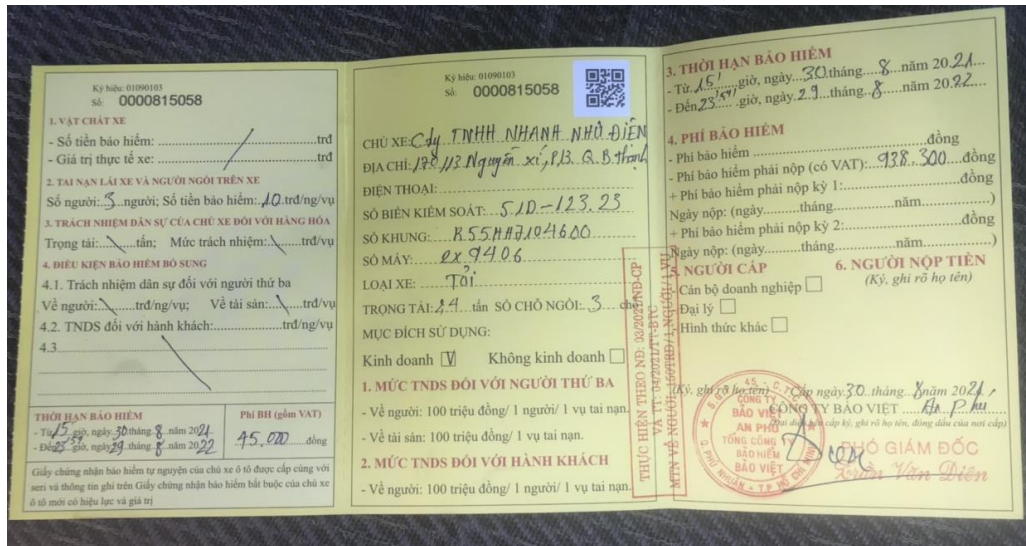 Ký hiệu: 01090103
Số: 0000815058
1. VẬT CHẤT XE
- Số tiền bảo hiểm: ............trđ
- Giá trị thực tế xe: ............trđ
2. TAI NẠN LÁI XE VÀ NGƯỜI NGỒI TRÊN XE
Số người: 3 người; Số tiền bảo hiểm: 10 trđ/ng/vụ
3. TRÁCH NHIỆM DÂN SỰ CỦA CHỦ XE ĐỐI VỚI HÀNG HÓA
Trọng tải: ......tấn; Mức trách nhiệm: ......trđ/vụ
4. ĐIỀU KIỆN BẢO HIỂM BỔ SUNG
4.1. Trách nhiệm dân sự đối với người thứ ba
Về người: ......trđ/ng/vụ; Về tài sản: ......trđ/vụ
4.2. TNDS đối với hành khách: ............trđ/ng/vụ
4.3
THỜI HẠN BẢO HIỂM
- Từ 15 giờ, ngày 30 tháng 8 năm 2021
- Đến 23h59 giờ, ngày 29 tháng 8 năm 2022
Phí BH (gồm VAT)
45.000 đồng
Giấy chứng nhận bảo hiểm tự nguyện của chủ xe ô tô được cấp cùng với
seri và thông tin ghi trên Giấy chứng nhận bảo hiểm bắt buộc của chủ xe
ô tô mới có hiệu lực và giá trị
Ký hiệu: 01090103
Số: 0000815058
CHỦ XE: Cty TNHH NHANH NHƯ ĐIỆN
ĐỊA CHỈ: Nguyễn Xí, P13. Q. B. Thạnh
ĐIỆN THOẠI:
SỐ BIỂN KIỂM SOÁT: 51D-123.23
SỐ KHUNG:
SỐ MÁY:
LOẠI XE: Tải
TRỌNG TẢI: 2,4 tấn SỐ CHỖ NGỒI: 3 chỗ
MỤC ĐÍCH SỬ DỤNG:
Kinh doanh V Không kinh doanh
1. MỨC TNDS ĐỐI VỚI NGƯỜI THỨ BA
- Về người: 100 triệu đồng/ 1 người/ 1 vụ tai nạn.
- Về tài sản: 100 triệu đồng/ 1 vụ tai nạn.
2. MỨC TNDS ĐỐI VỚI HÀNH KHÁCH
- Về người: 100 triệu đồng/ 1 người/ 1 vụ tai nạn.
THỰC HIỆN THEO NĐ: 03/2021/NĐ-CP
VÀ TT: 04/2021/TT-BTC
MTN VỀ NGƯỜI: 150TRĐ/1 NGƯỜI/1 VỤ
3. THỜI HẠN BẢO HIỂM
- Từ 15 giờ, ngày 30 tháng 8 năm 2021
- Đến 23h59 giờ, ngày 29 tháng 8 năm 2022
4. PHÍ BẢO HIỂM
- Phí bảo hiểm ............đồng
- Phí bảo hiểm phải nộp (có VAT): 938.300 đồng
+ Phí bảo hiểm phải nộp kỳ 1: ............đồng
Ngày nộp: (ngày......tháng......năm......)
+ Phí bảo hiểm phải nộp kỳ 2: ............đồng
Ngày nộp: (ngày......tháng......năm......)
5. NGƯỜI CẤP
- Cán bộ doanh nghiệp
- Đại lý
- Hình thức khác
(Ký, ghi rõ họ tên)
6. NGƯỜI NỘP TIỀN
(Ký, ghi rõ họ tên)
Cấp ngày 30 tháng 8 năm 2021
CÔNG TY BẢO VIỆT An Phú
CÔNG TY
BẢO VIỆT
AN PHÚ
TỔNG CÔNG TY
BẢO HIỂM
BẢO VIỆT
Q. PHÚ NHUẬN - T.P HỒ CHÍ MINH
PHÓ GIÁM ĐỐC